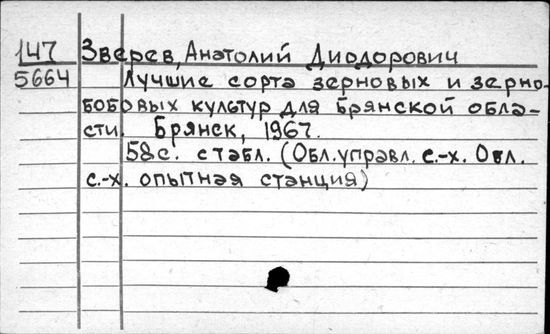 147 Зверев, Анатолий Диодорович
5664 Лучшие сорта зерновых и зерно-
бобовых культур для Брянской обла-
сти. Брянск, 1967.
58 с. с табл. (Обл. управл. с.-х. Обл.
с.-х. опытная станция)